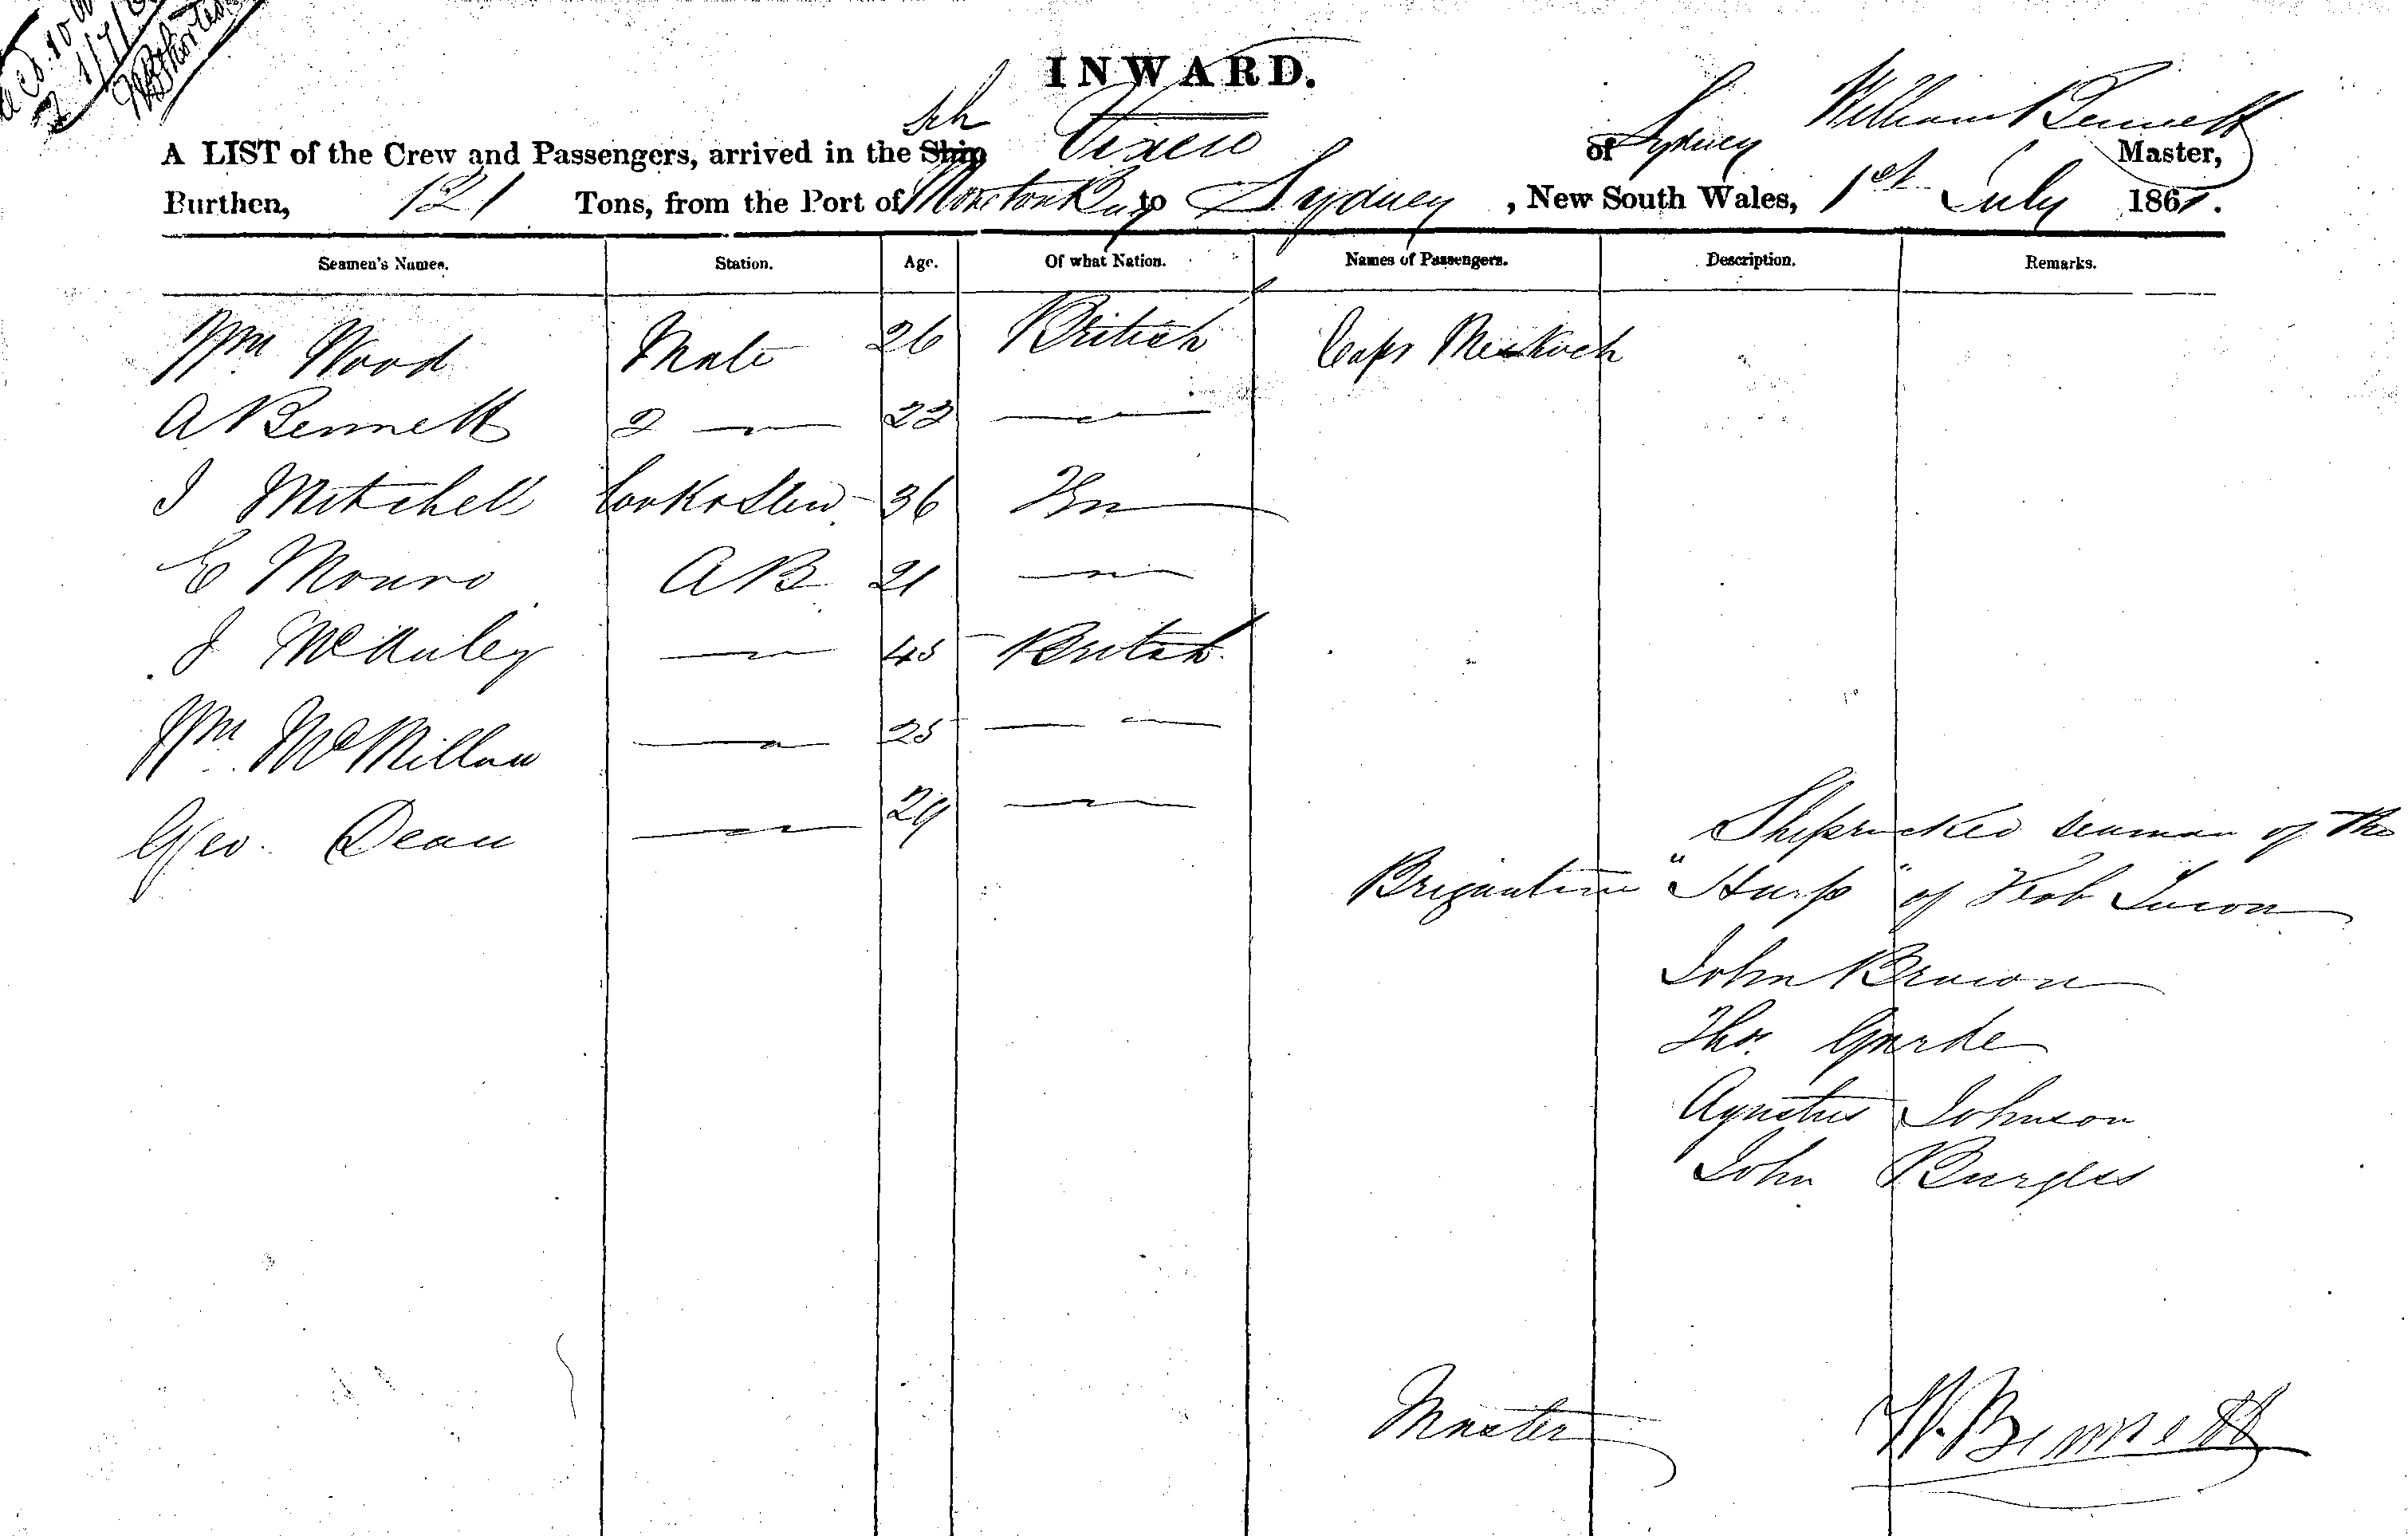 INWARD.
A LIST of the Crew and Passengers, arrived in the Ship Sch Vixen of Sydney William Bennett Master,
Burthen, 121 Tons, from the Port of Moreton Bay to Sydney, New South Wales, 1st July 1867.
Seamen's Names. Station. Age. Of what Nation. Names of Passengers. Description. Remarks.
Wm Wood Mate 26 British Capt
A Bennett 2 — 22 —
J Mitchell Cook & Stew 36
E Monro AB 21 —
J McAuley — 45 British
Wm McMillan — 25 — —
Geo. Dean — 29 —
Shipricked seaman of the
Brigantine "Harp" of
John Brown
Thos.
Johnson
John Burgess
Master W. Bennett